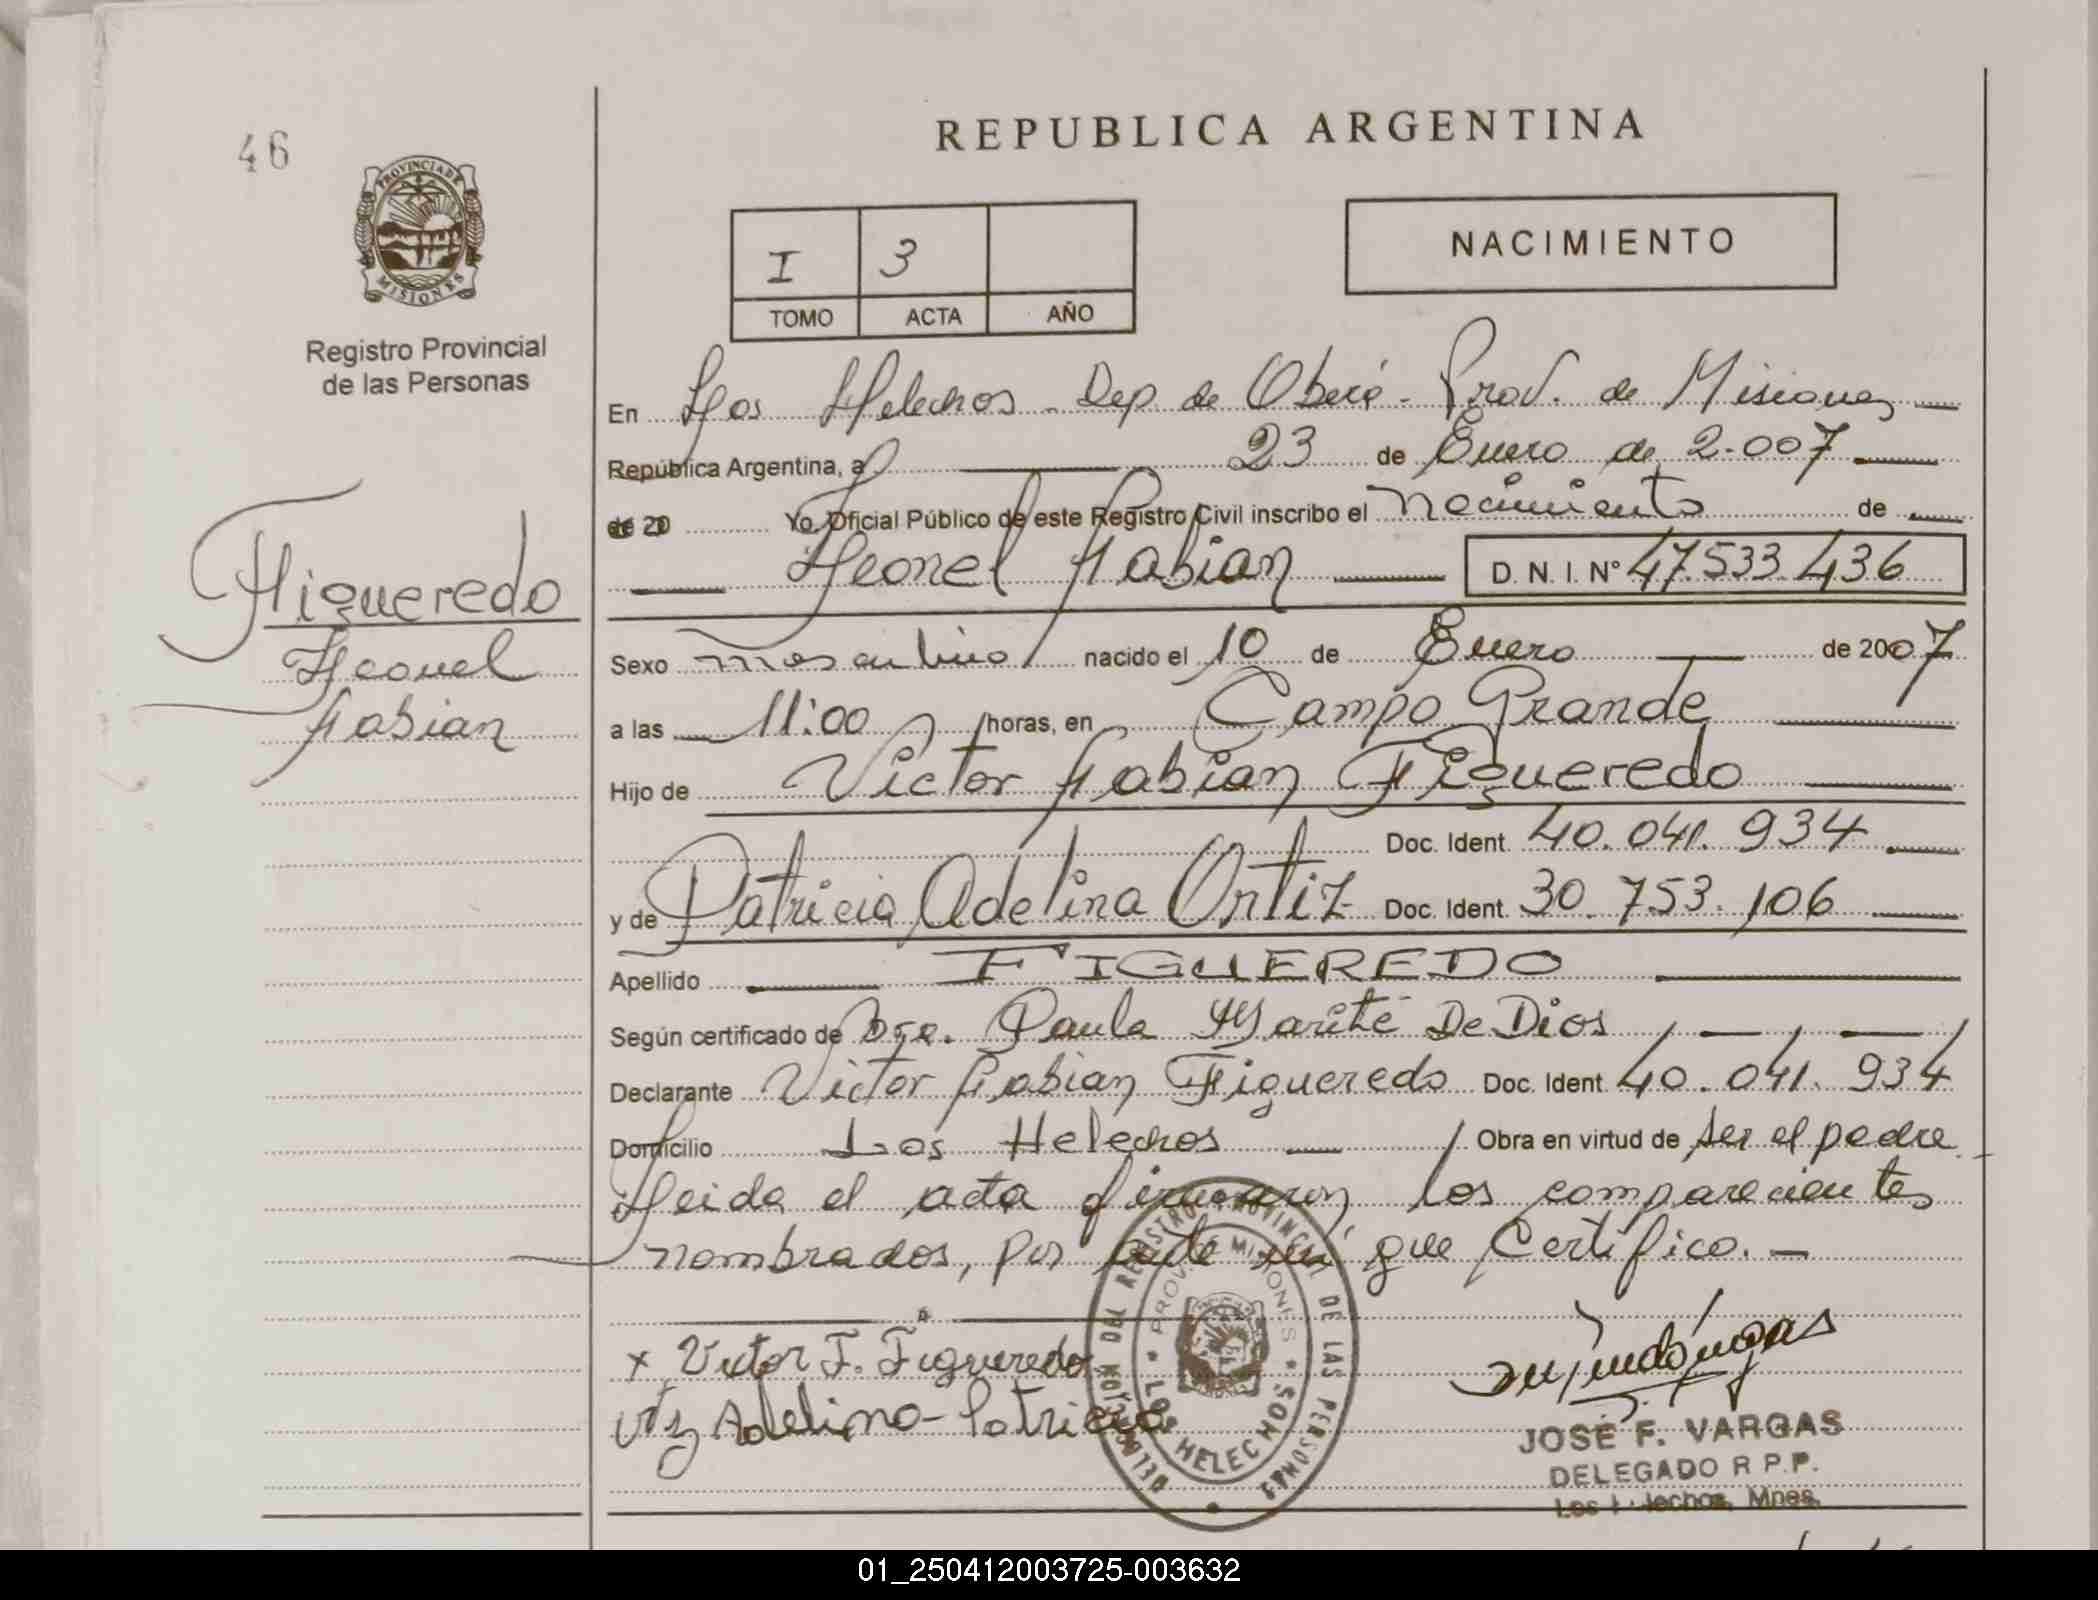 REPUBLICA ARGENTINA
46
PROVINCIA DE
MISIONES
Registro Provincial
de las Personas
I 3
TOMO ACTA AÑO
NACIMIENTO
En Los Helechos - Dep. de Oberá - Prov. de Misiones
República Argentina, a 23 de Enero de 2.007
de 20 Yo, Oficial Público de este Registro Civil inscribo el nacimiento de
Leonel Fabian D. N. I. Nº 47.533.436
Figueredo
Leonel
Fabian
Sexo masculino nacido el 10 de Enero de 2007
a las 11:00 horas, en Campo Grande
Hijo de Victor Fabian Figueredo
Doc. Ident. 40.041.934
y de Patricia Adelina Ortiz Doc. Ident. 30.753.106
Apellido FIGUEREDO
Según certificado de Dra. Paula Marité De Dios
Declarante Victor Fabian Figueredo Doc. Ident. 40.041.934
Domicilio Los Helechos Obra en virtud de ser el padre
Leida el acta firmaron los comparecientes
nombrados, por ante mí que Certifico. -
x Victor F. Figueredo
Adelina - Patricia
DELEGACION DEL REGISTRO PROVINCIAL DE LAS PERSONAS
PROV. DE MISIONES
LOS HELECHOS
JOSE F. VARGAS
DELEGADO R P.P.
Los Helechos, Mnes.
01_250412003725-003632